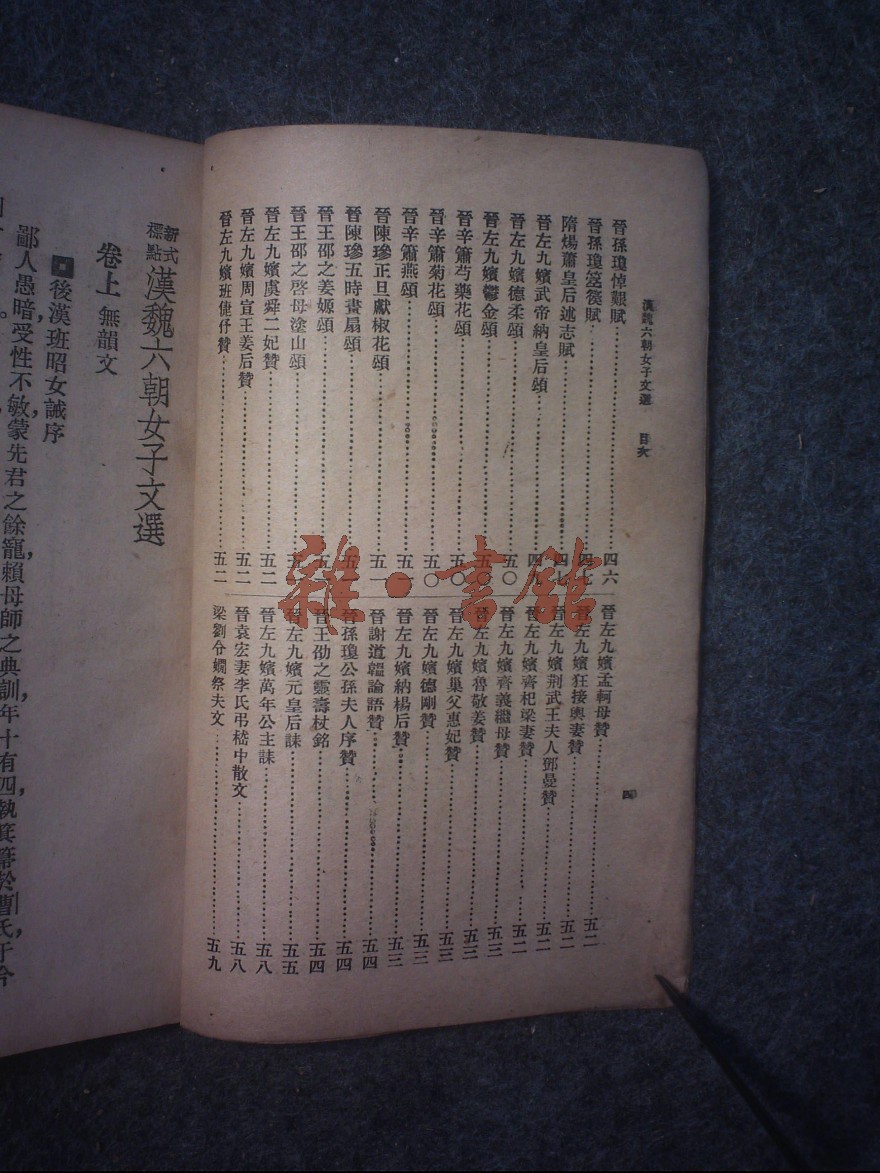 漢魏六朝女子文選　目次
晉孫瓊悼艱賦……四六
晉孫瓊箜篌賦……四七
隋煬蕭皇后述志賦……四七
晉左九嬪武帝納皇后頌……四九
晉左九嬪德柔頌……五〇
晉左九嬪鬱金頌……五〇
晉辛簫芍藥花頌……五〇
晉辛簫菊花頌……五〇
晉辛簫燕頌……五一
晉陳璆正旦獻椒花頌……五一
晉陳璆五時畫扇頌……五一
晉王邵之姜嫄頌……五一
晉王邵之啓母塗山頌……五一
晉左九嬪虞舜二妃贊……五二
晉左九嬪周宣王姜后贊……五二
晉左九嬪班倢伃贊……五二
晉左九嬪孟軻母贊……五二
晉左九嬪狂接輿妻贊……五二
晉左九嬪荆武王夫人鄧曼贊……五二
晉左九嬪齊杞梁妻贊……五二
晉左九嬪齊義繼母贊……五三
晉左九嬪魯敬姜贊……五三
晉左九嬪巢父惠妃贊……五三
晉左九嬪德剛贊……五三
晉左九嬪納楊后贊……五三
晉謝道韞論語贊……五四
晉孫瓊公孫夫人序贊……五四
晉王劭之靈壽杖銘……五四
晉左九嬪元皇后誄……五五
晉左九嬪萬年公主誄……五八
晉袁宏妻李氏弔嵇中散文……五八
梁劉令嫺祭夫文……五九
四
新式標點漢魏六朝女子文選
卷上　無韻文
後漢班昭女誡序
鄙人愚暗，受性不敏，蒙先君之餘寵，賴母師之典訓，年十有四，執箕箒於曹氏，于今
雜·書館